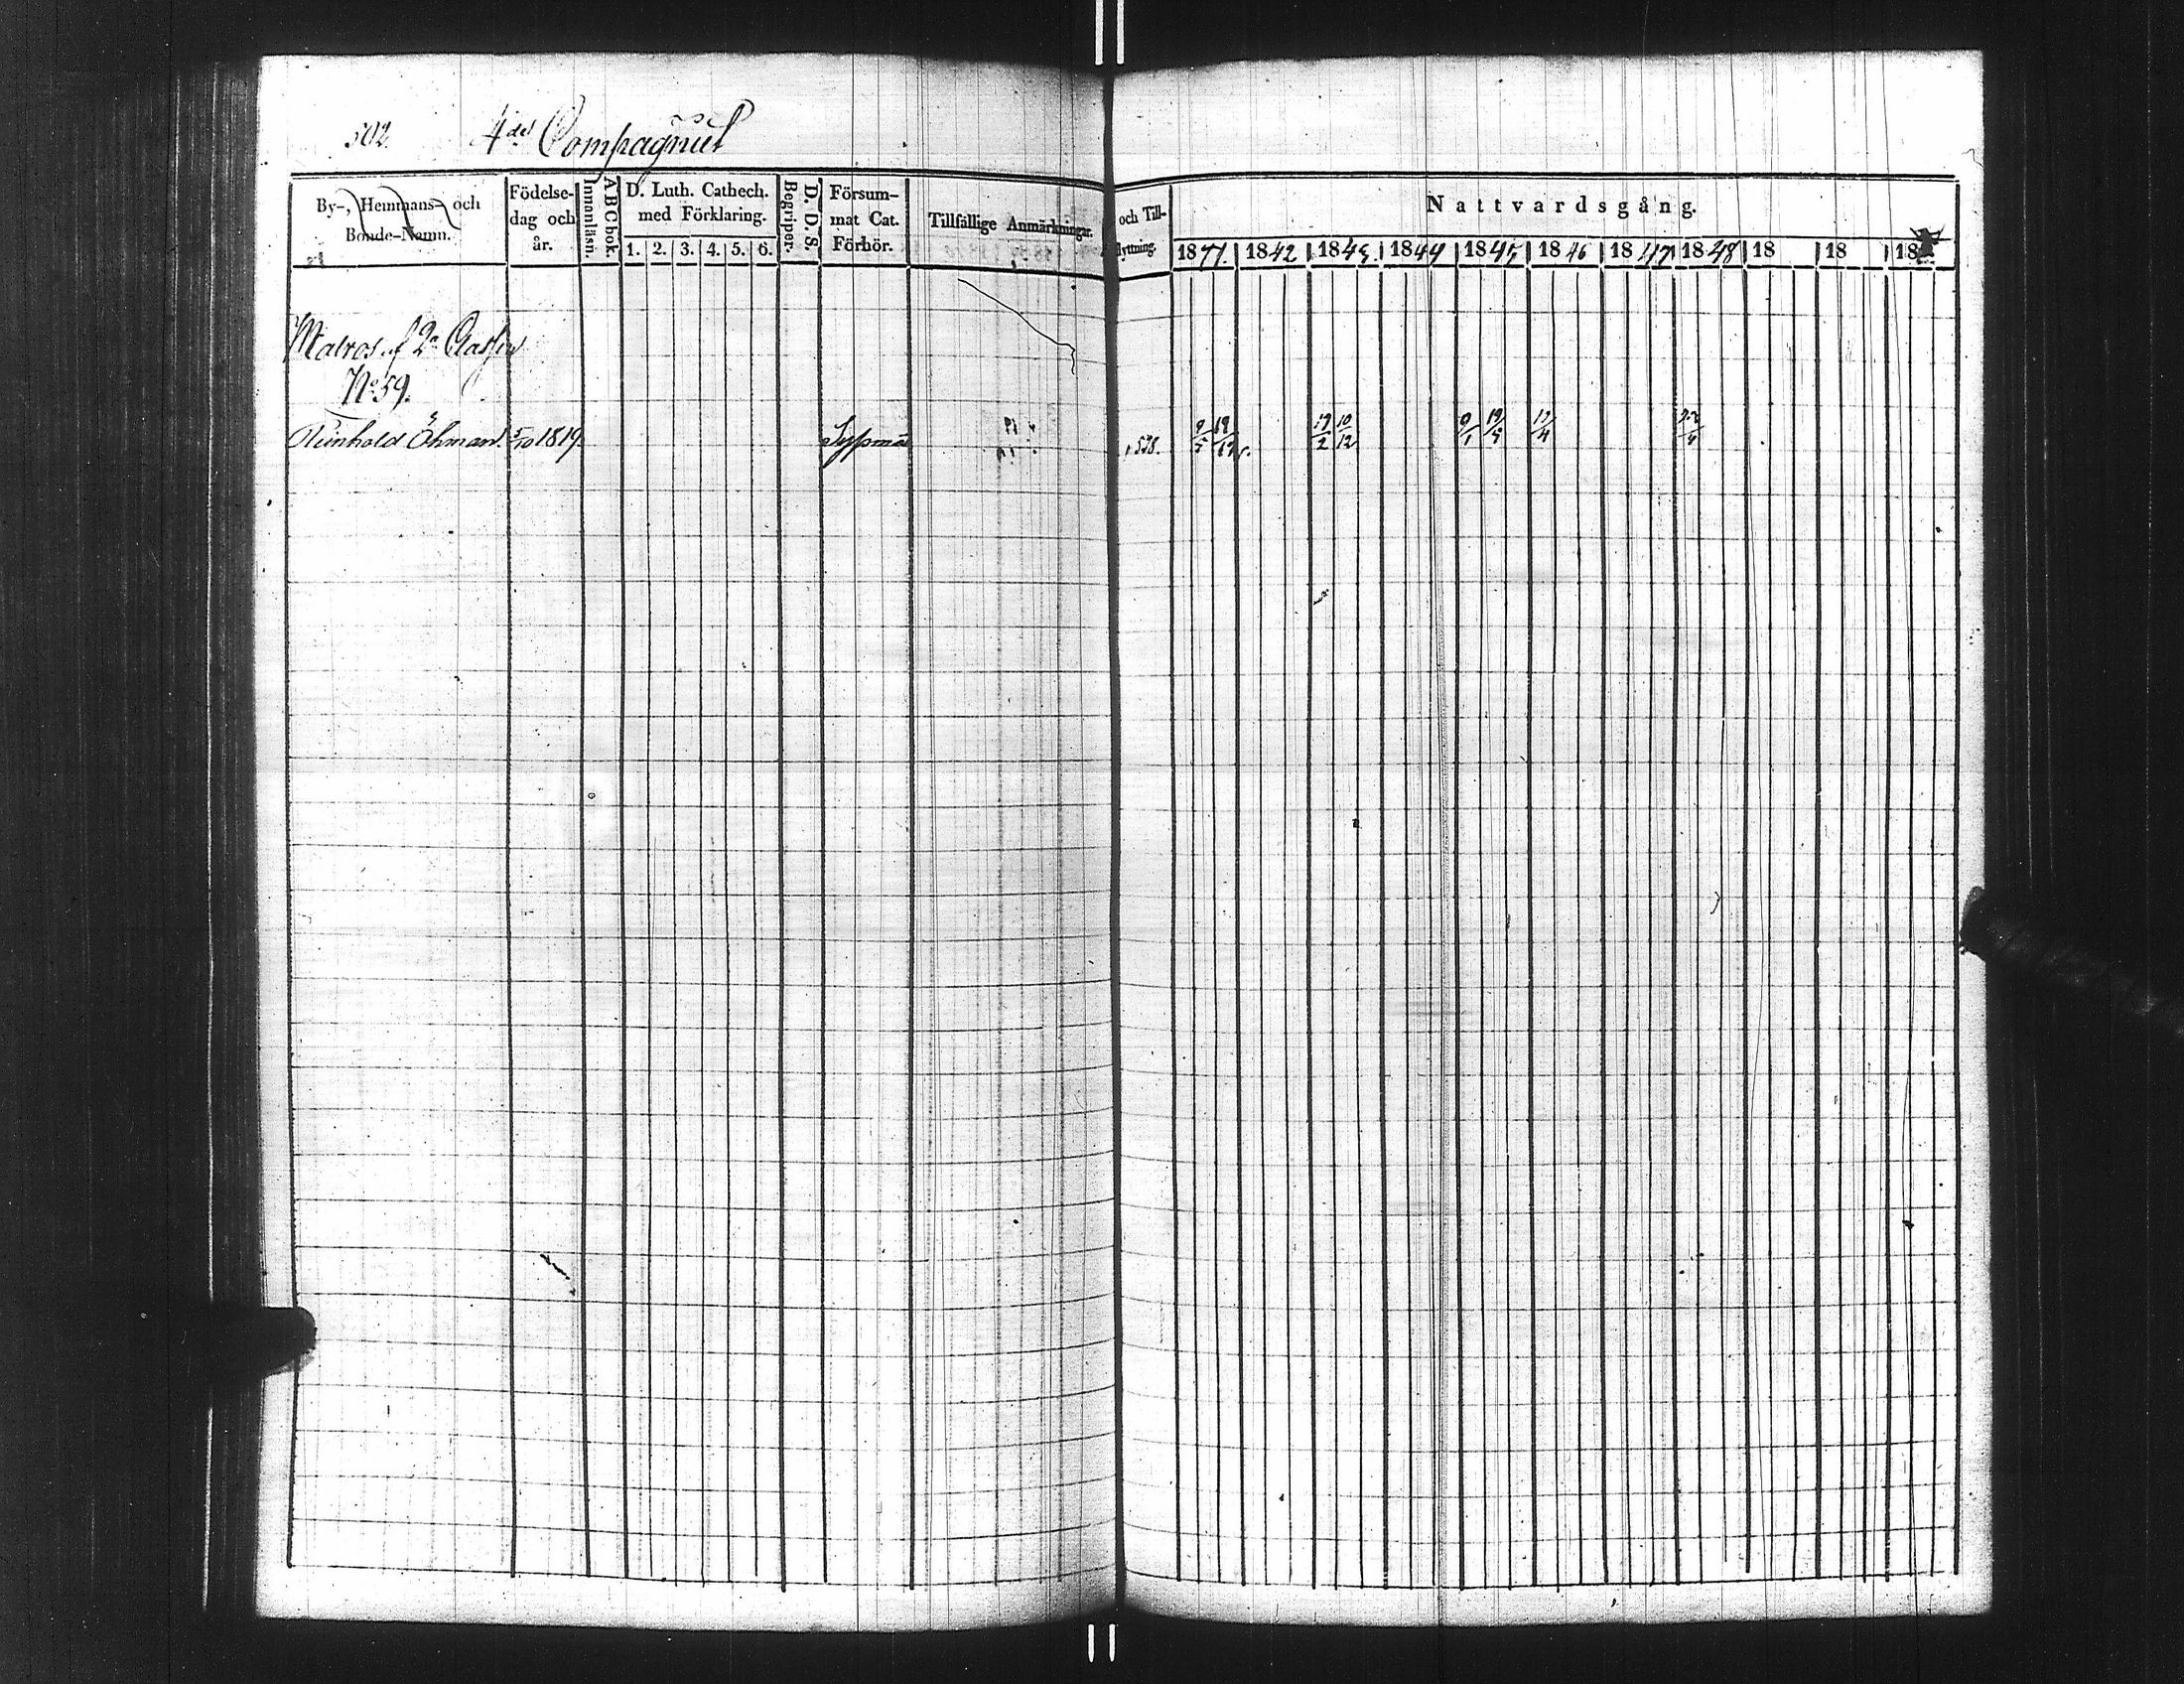 502. 4de Compagniet
By-, Hemmans- och Bonde-Namn.
Födelse-dag och år.
ABCbok. Innanläsn.
D. Luth. Cathech. med Förklaring.
1. 2. 3. 4. 5. 6.
D. D. S. Begriper.
Försum-mat Cat. Förhör.
Tillfällige Anmärkningar.
och Till-
flyttning.
Nattvardsgång.
1841. 1842 1843. 1844 1845 1846 1847 1848 18 18 18
Matros af 2a Classen
No 59.
Reinhold Öhman. 5/10 1819. 538. 9/5 19/12 19/2 10/12 9/1 12/4